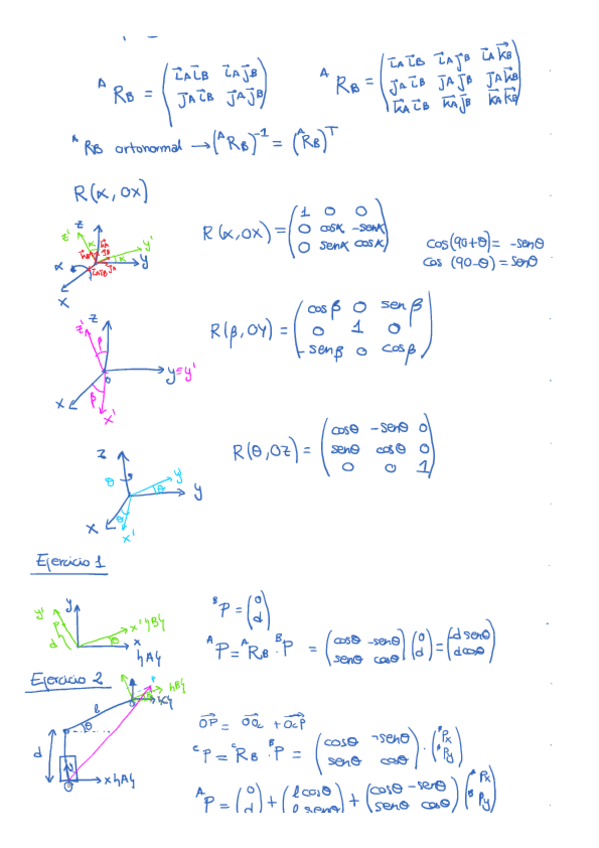 ᴬR_B = ( i⃗_A i⃗_B  i⃗_A j⃗_B ; j⃗_A i⃗_B  j⃗_A j⃗_B )  ᴬR_B = ( i⃗_A i⃗_B  i⃗_A j⃗_B  i⃗_A k⃗_B ; j⃗_A i⃗_B  j⃗_A j⃗_B  j⃗_A k⃗_B ; k⃗_A i⃗_B  k⃗_A j⃗_B  k⃗_A k⃗_B )
ᴬR_B ortonormal → (ᴬR_B)⁻¹ = (ᴬR_B)ᵀ
R(α, OX)
z z' y' y x α
R(α, OX) = ( 1 0 0 ; 0 cosα -senα ; 0 senα cosα )
cos(90+θ) = -senθ
cos (90-θ) = senθ
z z' β o y=y' x β x'
R(β, OY) = ( cosβ 0 senβ ; 0 1 0 ; -senβ 0 cosβ )
z θ y' θ y x θ x'
R(θ, OZ) = ( cosθ -senθ 0 ; senθ cosθ 0 ; 0 0 1 )
Ejercicio 1
y' y P d x' {B} θ x {A}
ᴮP = ( 0 ; d )
ᴬP = ᴬR_B · ᴮP = ( cosθ -senθ ; senθ cosθ ) ( 0 ; d ) = ( -d senθ ; d cosθ )
Ejercicio 2
P {B} {C} l θ d x {A}
O⃗P = O⃗O_c + O⃗_cP
ᶜP = ᶜR_B · ᴮP = ( cosθ -senθ ; senθ cosθ ) · ( ᴮPx ; ᴮPy )
ᴬP = ( 0 ; d ) + ( l cosθ ; l senθ ) + ( cosθ -senθ ; senθ cosθ ) ( ᴮPx ; ᴮPy )